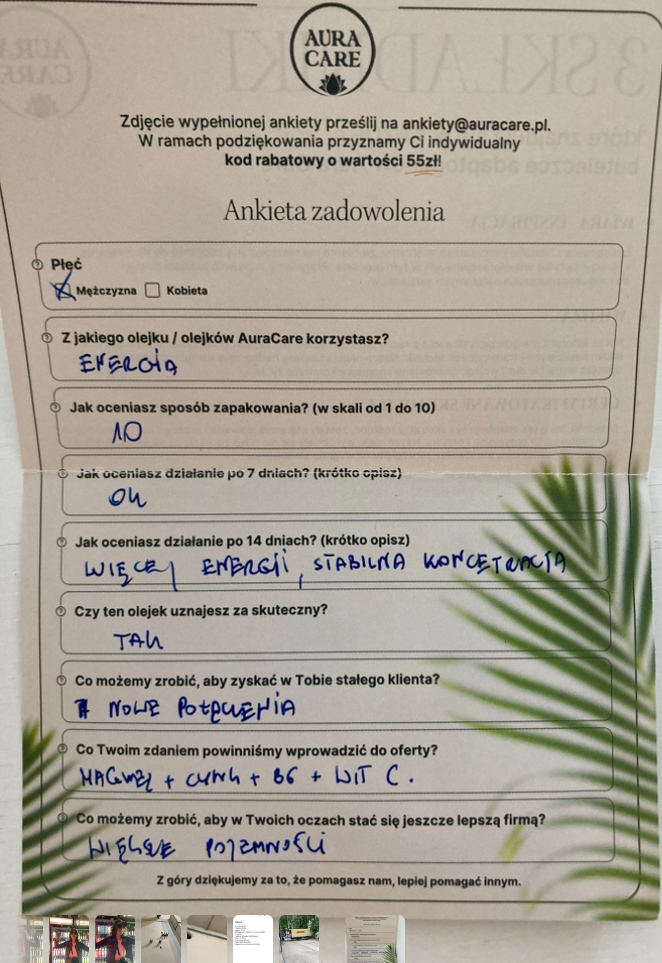 AURA
CARE
Zdjęcie wypełnionej ankiety prześlij na ankiety@auracare.pl.
W ramach podziękowania przyznamy Ci indywidualny
kod rabatowy o wartości 55zł!
Ankieta zadowolenia
Płeć
Mężczyzna Kobieta
Z jakiego olejku / olejków AuraCare korzystasz?
ENERGIA
Jak oceniasz sposób zapakowania? (w skali od 1 do 10)
10
Jak oceniasz działanie po 7 dniach? (krótko opisz)
OK
Jak oceniasz działanie po 14 dniach? (krótko opisz)
WIĘCEJ ENERGII, STABILNA KONCETRACJA
Czy ten olejek uznajesz za skuteczny?
TAK
Co możemy zrobić, aby zyskać w Tobie stałego klienta?
NOWE POŁĄCZENIA
Co Twoim zdaniem powinniśmy wprowadzić do oferty?
MAGNEZ + CYNK + B6 + WIT C.
Co możemy zrobić, aby w Twoich oczach stać się jeszcze lepszą firmą?
WIĘKSZE POJEMNOŚCI
Z góry dziękujemy za to, że pomagasz nam, lepiej pomagać innym.